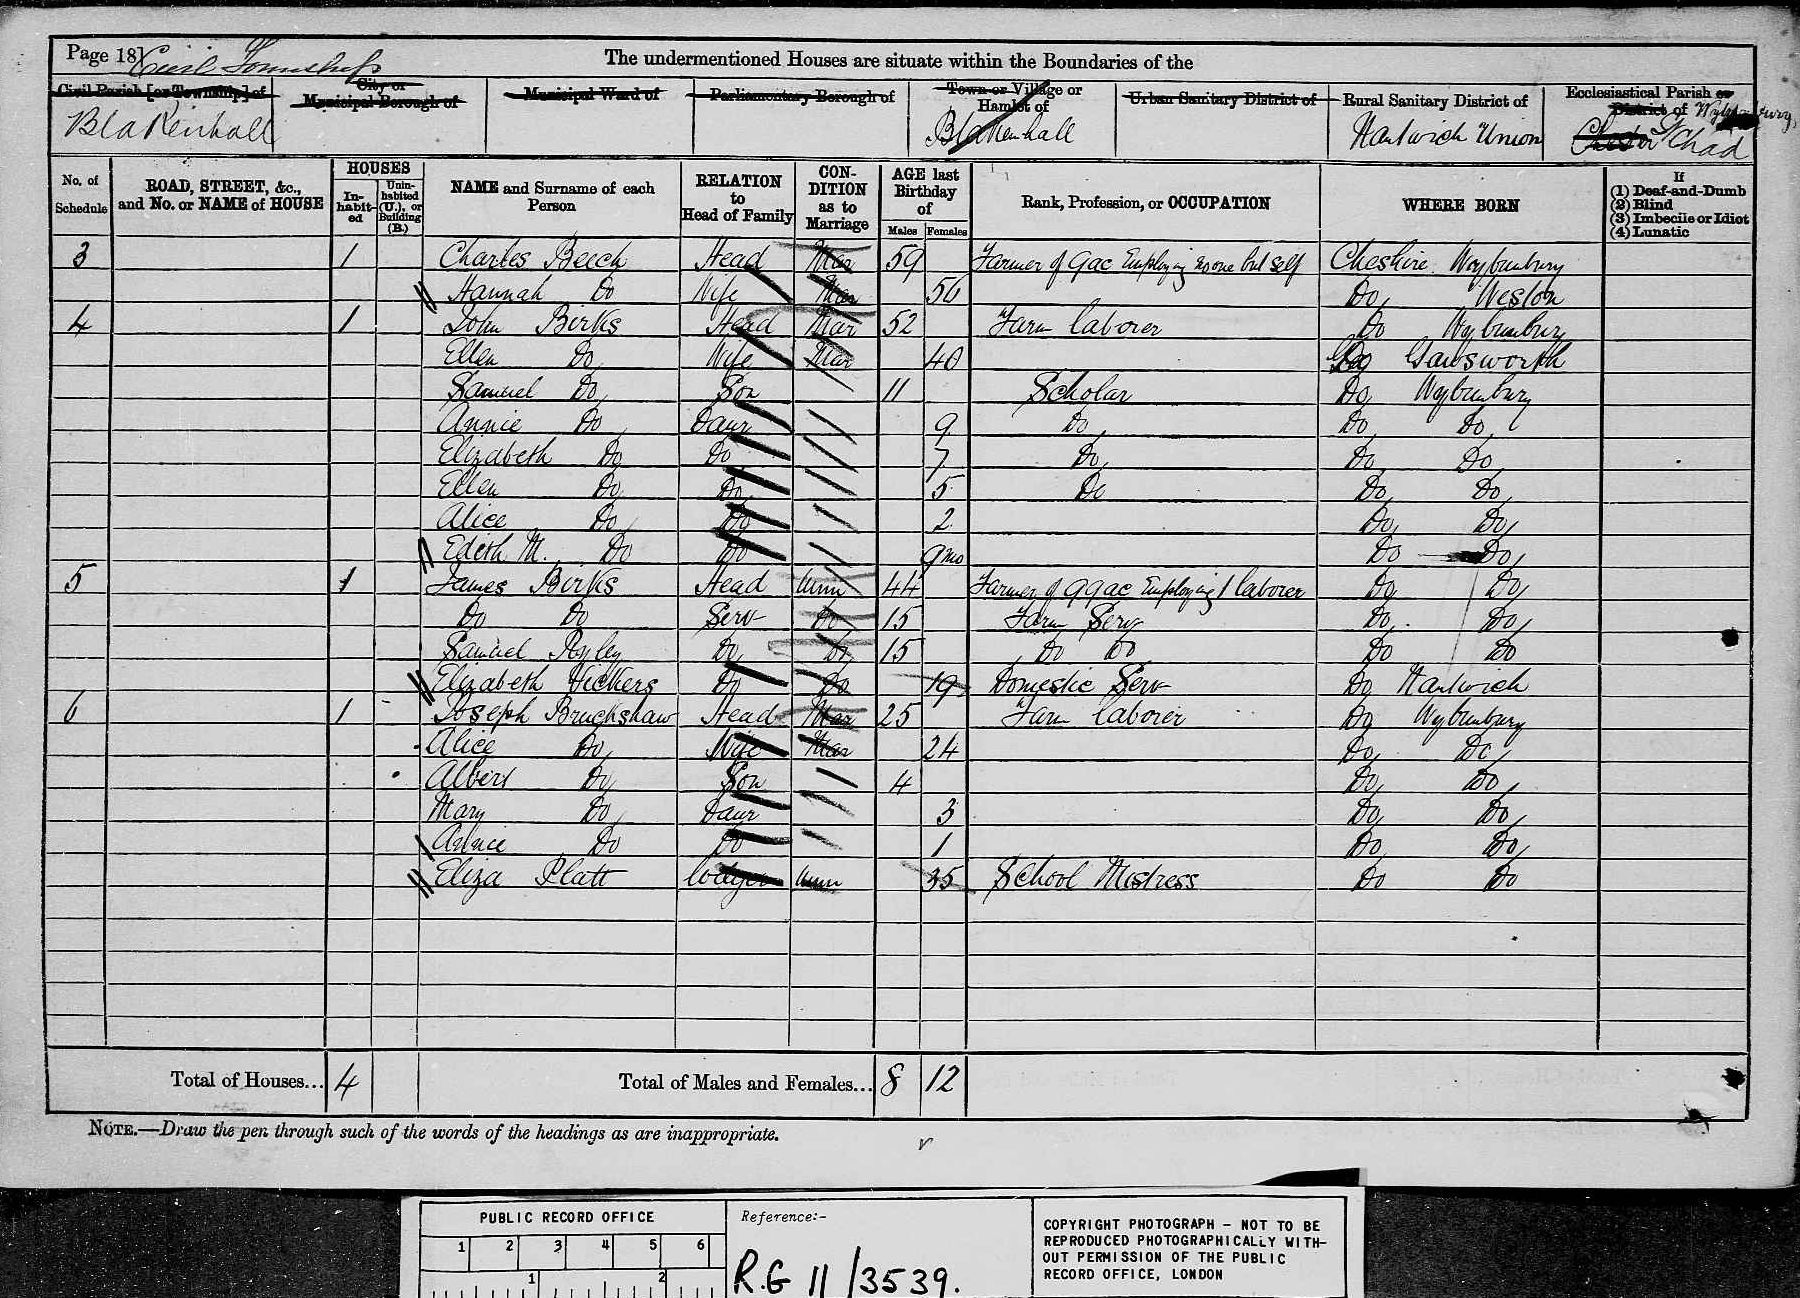 Page 18] Civil Township The undermentioned Houses are situate within the Boundaries of the
Civil Parish [or Township] of City or Municipal Borough of Municipal Ward of Parliamentary Borough of Town or Village or Hamlet of Urban Sanitary District of Rural Sanitary District of Ecclesiastical Parish or District of
Blakenhall Blakenhall Nantwich Union St Chad
No. of Schedule ROAD, STREET, &c., and No. or NAME of HOUSE HOUSES In-habit-ed Unin-habited (U.), or Building (B.) NAME and Surname of each Person RELATION to Head of Family CON-DITION as to Marriage AGE last Birthday of Males Females Rank, Profession, or OCCUPATION WHERE BORN If (1) Deaf-and-Dumb (2) Blind (3) Imbecile or Idiot (4) Lunatic
3 1 Charles Beech Head Mar 59 Farmer of 9ac Employing no one but self Cheshire Wybunbury
Hannah Do Wife Mar 56 Do Weston
4 1 John Birks Head Mar 52 Farm laborer Do Wybunbury
Ellen Do Wife Mar 40 Do Gawsworth
Samuel Do Son 11 Scholar Do Wybunbury
Annie Do Daur 9 Do Do Do
Elizabeth Do Do 7 Do Do Do
Ellen Do Do 5 Do Do Do
Alice Do Do 2 Do Do
Edith M. Do Do 9mo Do Do
5 1 James Birks Head Unm 44 Farmer of 99ac Employing 1 laborer Do Do
Do Do Serv Do 15 Farm Serv Do Do
Samuel Do Do 15 Do Do Do Do
Elizabeth Vickers Do Do 19 Domestic Serv Do Nantwich
6 1 Joseph Bruckshaw Head Mar 25 Farm laborer Do Wybunbury
Alice Do Wife Mar 24 Do Do
Albert Do Son 4 Do Do
Mary Do Daur 3 Do Do
Annie Do Do 1 Do Do
Eliza Platt lodger Unm 35 School Mistress Do Do
Total of Houses... 4 Total of Males and Females... 8 12
NOTE.—Draw the pen through such of the words of the headings as are inappropriate.
PUBLIC RECORD OFFICE
1 2 3 4 5 6
1 2
Reference:-
R.G 11/3539.
COPYRIGHT PHOTOGRAPH - NOT TO BE
REPRODUCED PHOTOGRAPHICALLY WITH-
OUT PERMISSION OF THE PUBLIC
RECORD OFFICE, LONDON